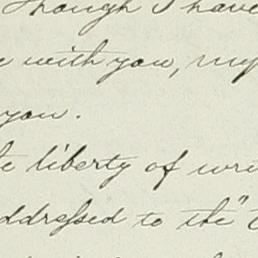 Though I have
with you, my
you.
liberty of wri
ddressed to the "